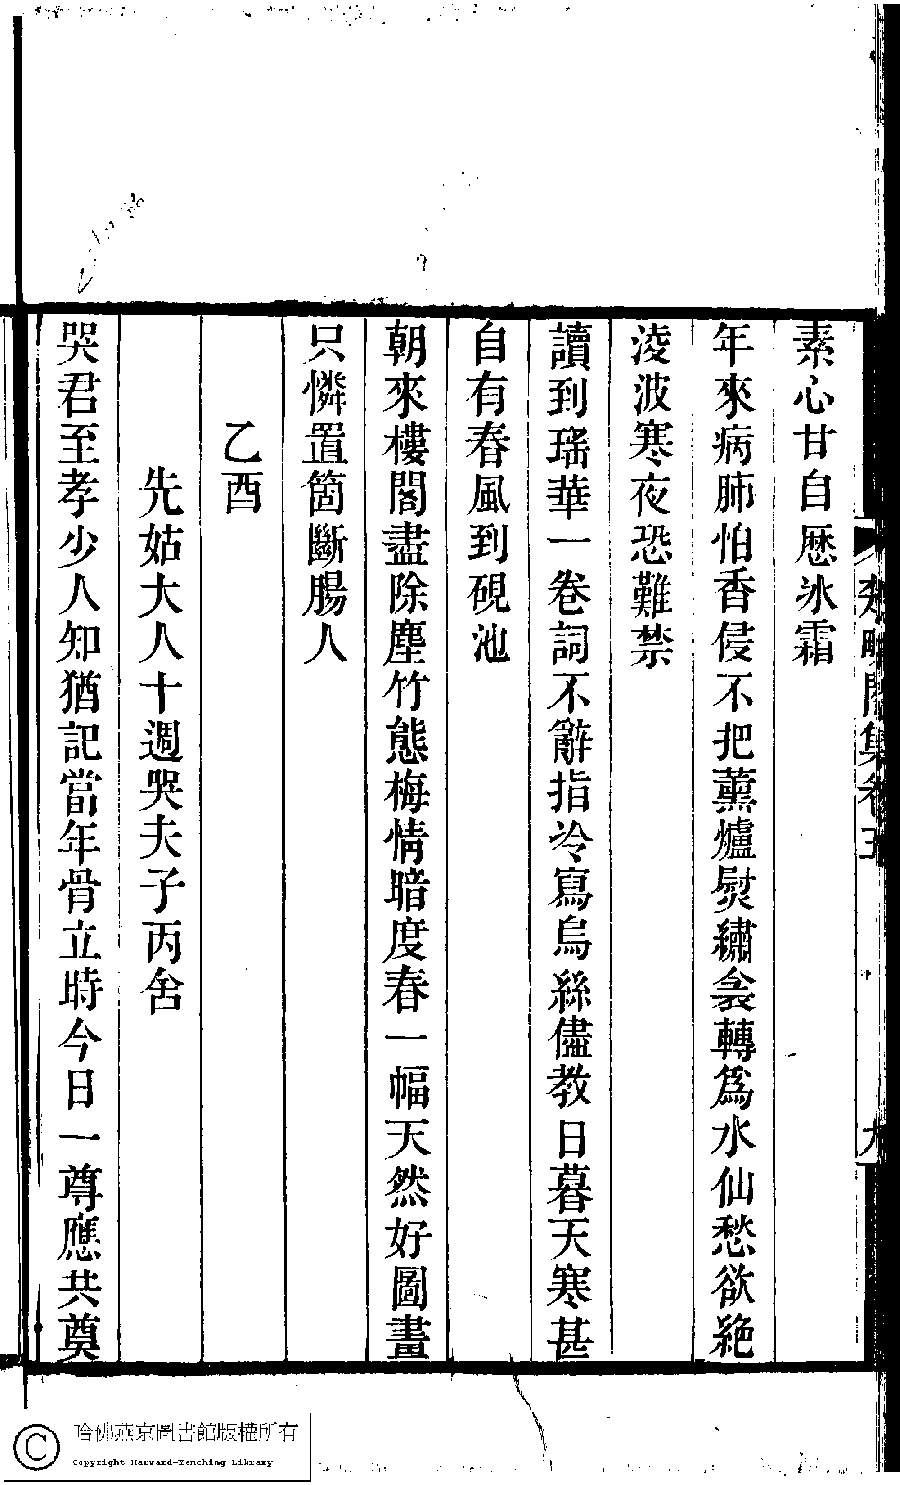 素心甘自厯冰霜
年來病肺怕香侵不把薰爐熨繡衾轉爲水仙愁欲絶
淩波寒夜恐難禁
讀到瑤華一卷詞不辭指冷寫烏絲儘教日暮天寒甚
自有春風到硯池
朝來樓閣盡除塵竹態梅情暗度春一幅天然好圖畫
只憐置箇斷腸人
乙酉
先姑大人十週哭夫子丙舍
哭君至孝少人知猶記當年骨立時今日一尊應共奠
哈佛燕京圖書館版權所有
Copyright Harvard-Yenching Library